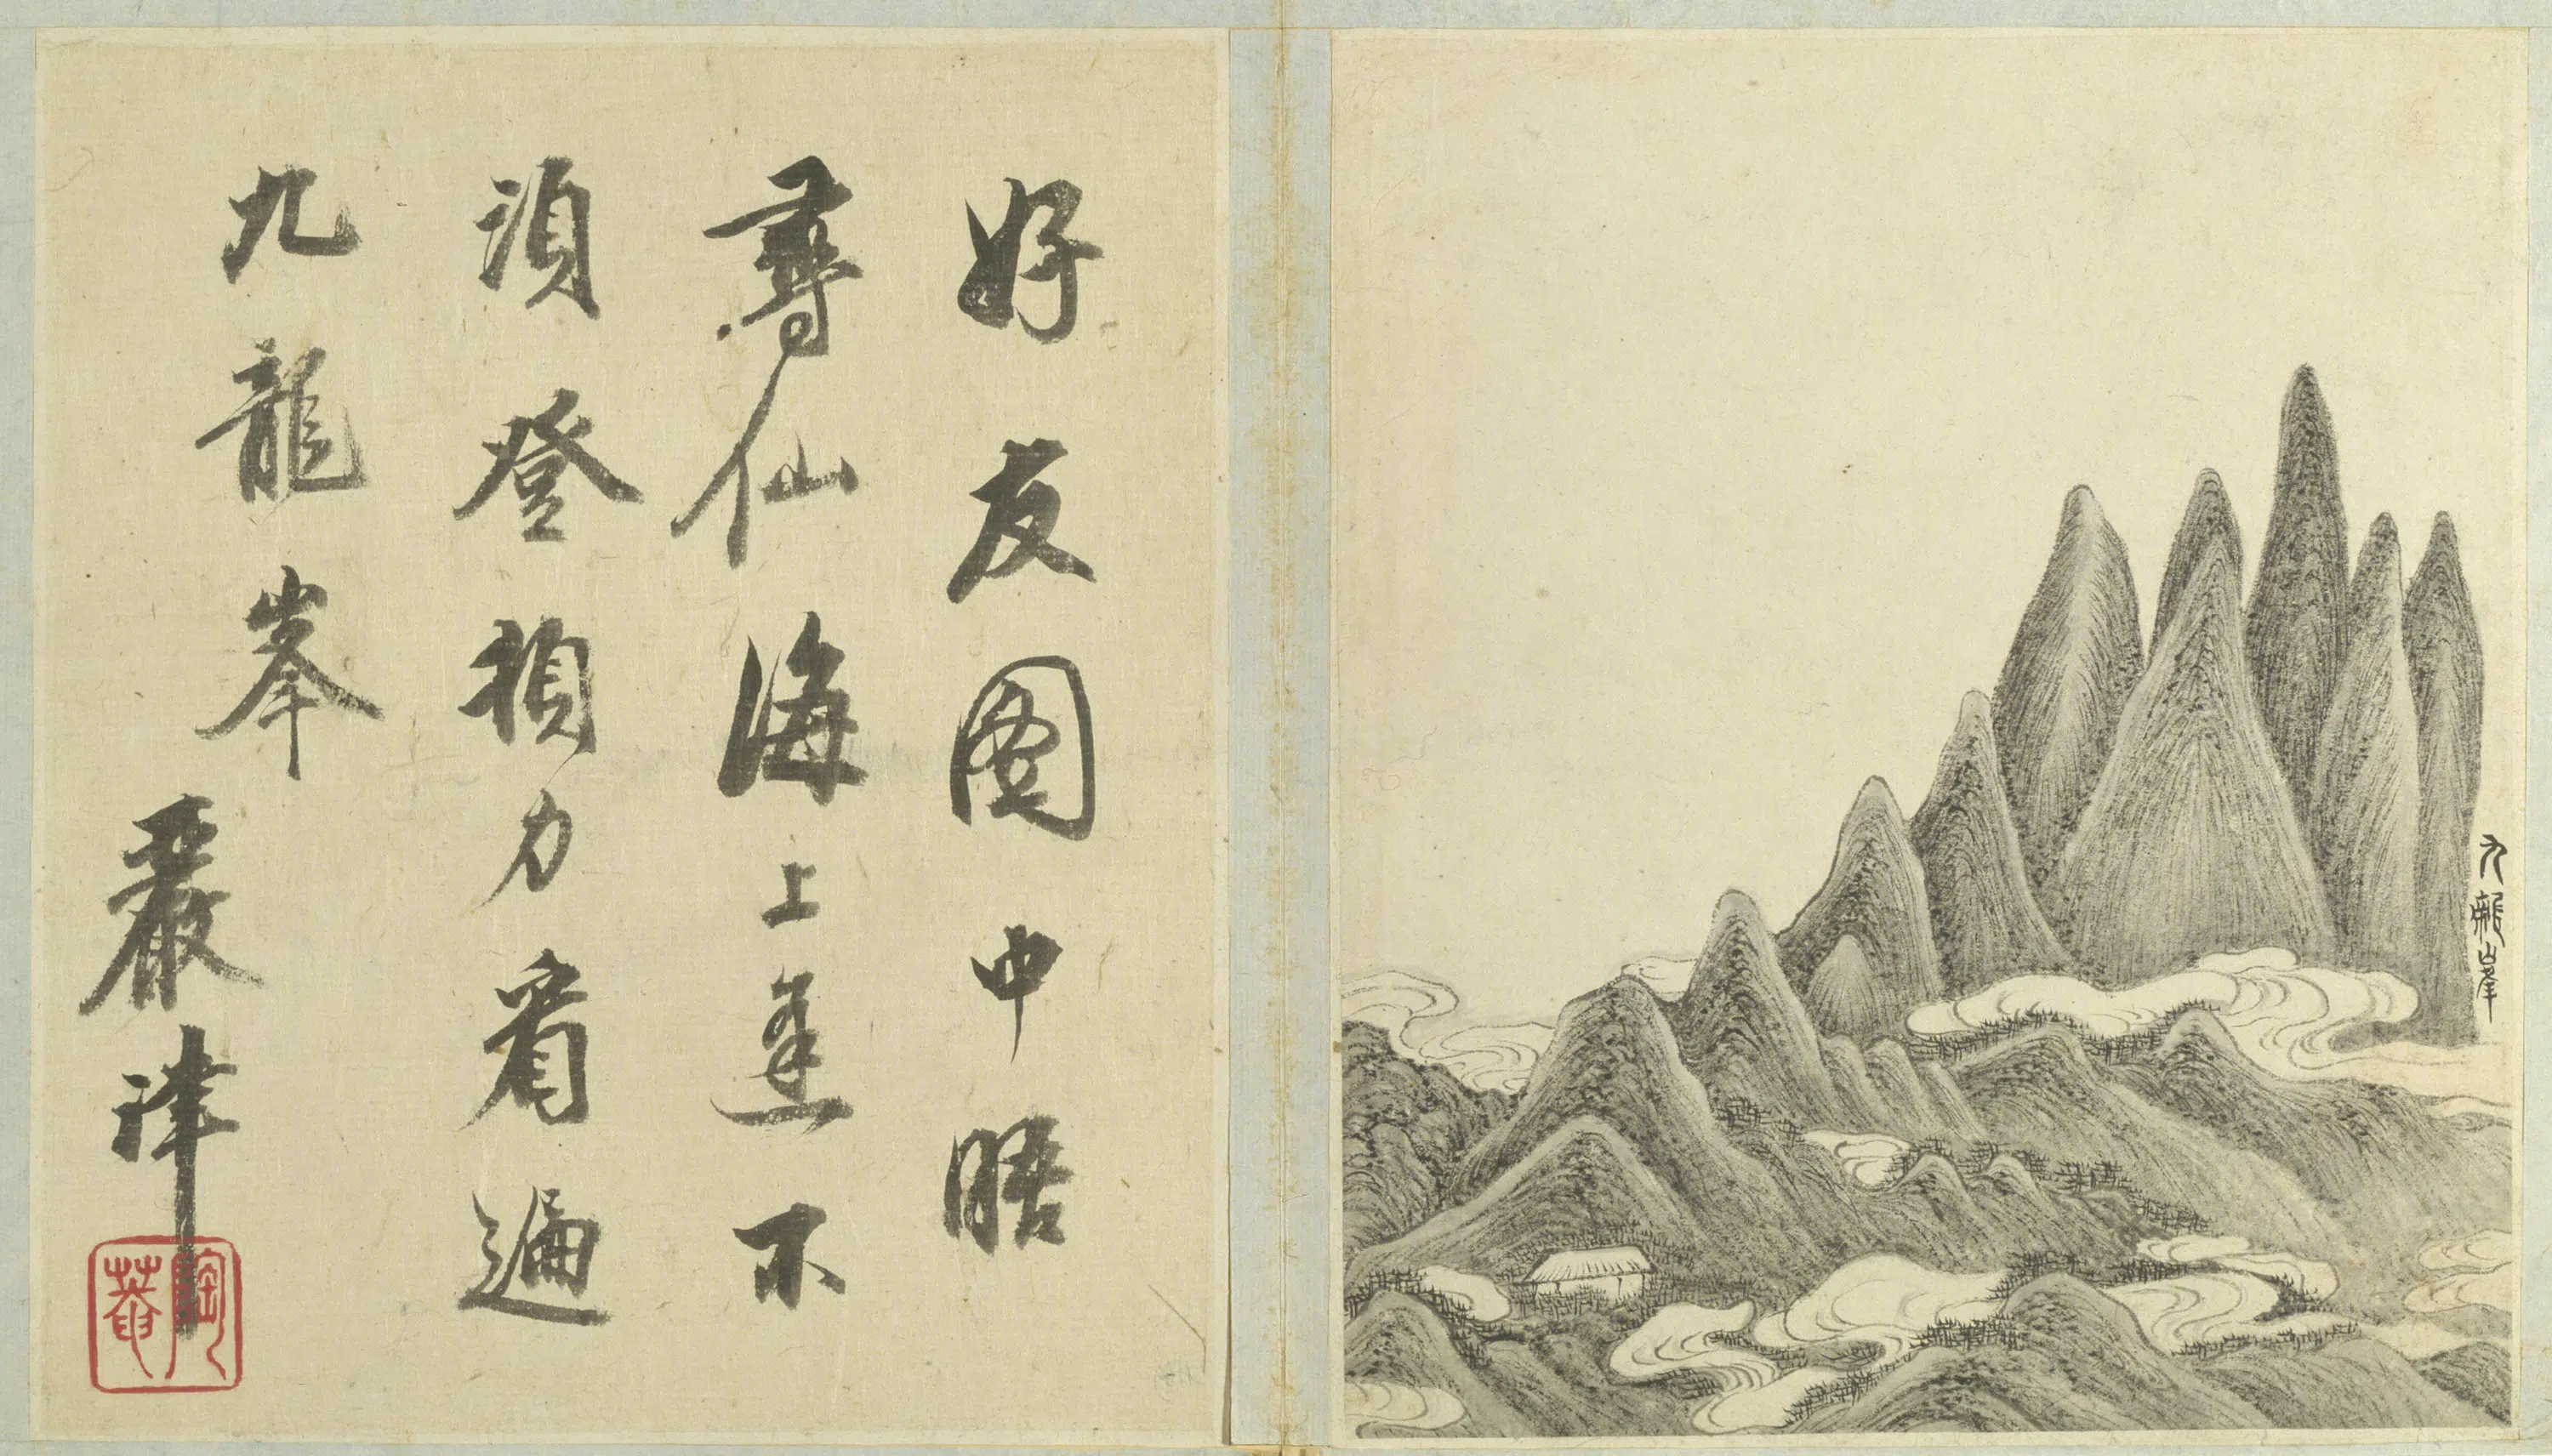 九龍峯
好友圖中晤
尋仙海上逢不
須登頓力看遍
九龍峯
嚴津
陶菴